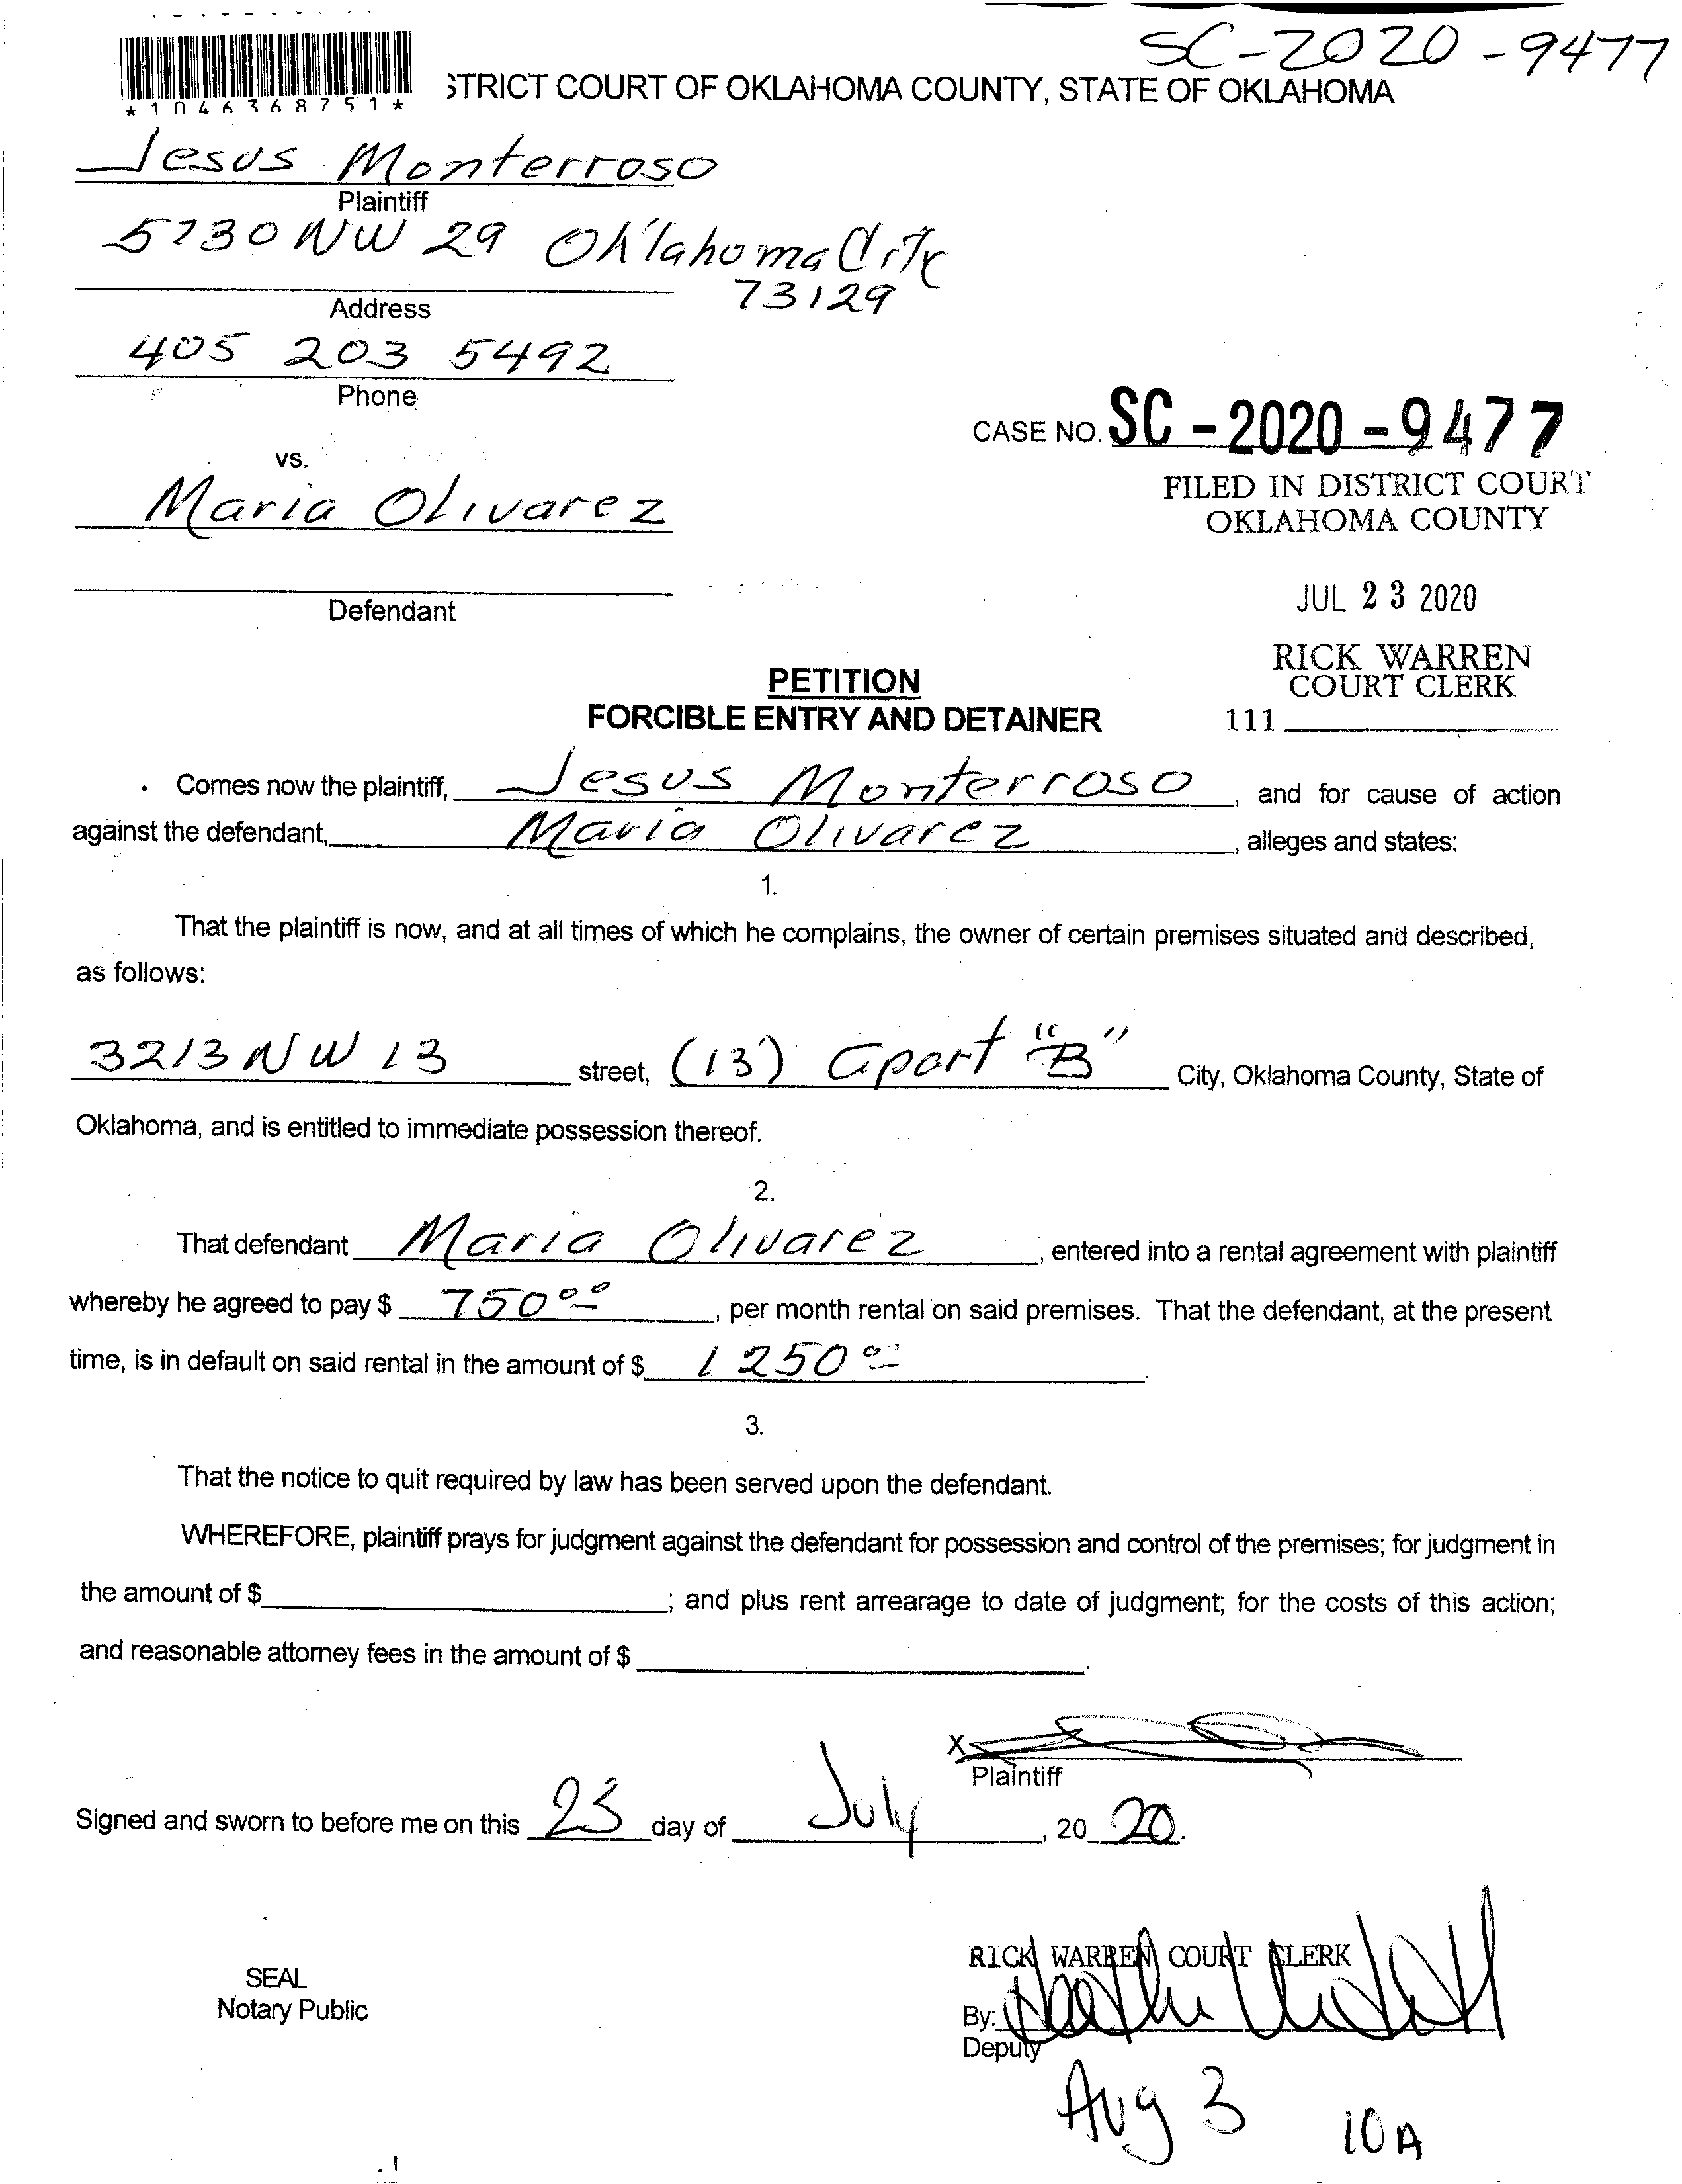 SC-2020-9477
*1046368751*
STRICT COURT OF OKLAHOMA COUNTY, STATE OF OKLAHOMA
Jesus Monterroso
Plaintiff
5730 NW 29 Oklahoma City
73129
Address
405 203 5492
Phone
CASE NO. SC-2020-9477
vs.
FILED IN DISTRICT COURT
OKLAHOMA COUNTY
Maria Olivarez
JUL 23 2020
Defendant
RICK WARREN
COURT CLERK
111
PETITION
FORCIBLE ENTRY AND DETAINER
Comes now the plaintiff, Jesus Monterroso, and for cause of action
against the defendant, Maria Olivarez, alleges and states:
1.
That the plaintiff is now, and at all times of which he complains, the owner of certain premises situated and described,
as follows:
3213 NW 13 street, (13) apart "B" City, Oklahoma County, State of
Oklahoma, and is entitled to immediate possession thereof.
2.
That defendant Maria Olivarez, entered into a rental agreement with plaintiff
whereby he agreed to pay $ 750 00, per month rental on said premises. That the defendant, at the present
time, is in default on said rental in the amount of $ 1250 00.
3.
That the notice to quit required by law has been served upon the defendant.
WHEREFORE, plaintiff prays for judgment against the defendant for possession and control of the premises; for judgment in
the amount of $ ; and plus rent arrearage to date of judgment; for the costs of this action;
and reasonable attorney fees in the amount of $ .
X
Plaintiff
Signed and sworn to before me on this 23 day of July, 20 20.
RICK WARREN COURT CLERK
SEAL
Notary Public
By:
Deputy
Aug 3 10A